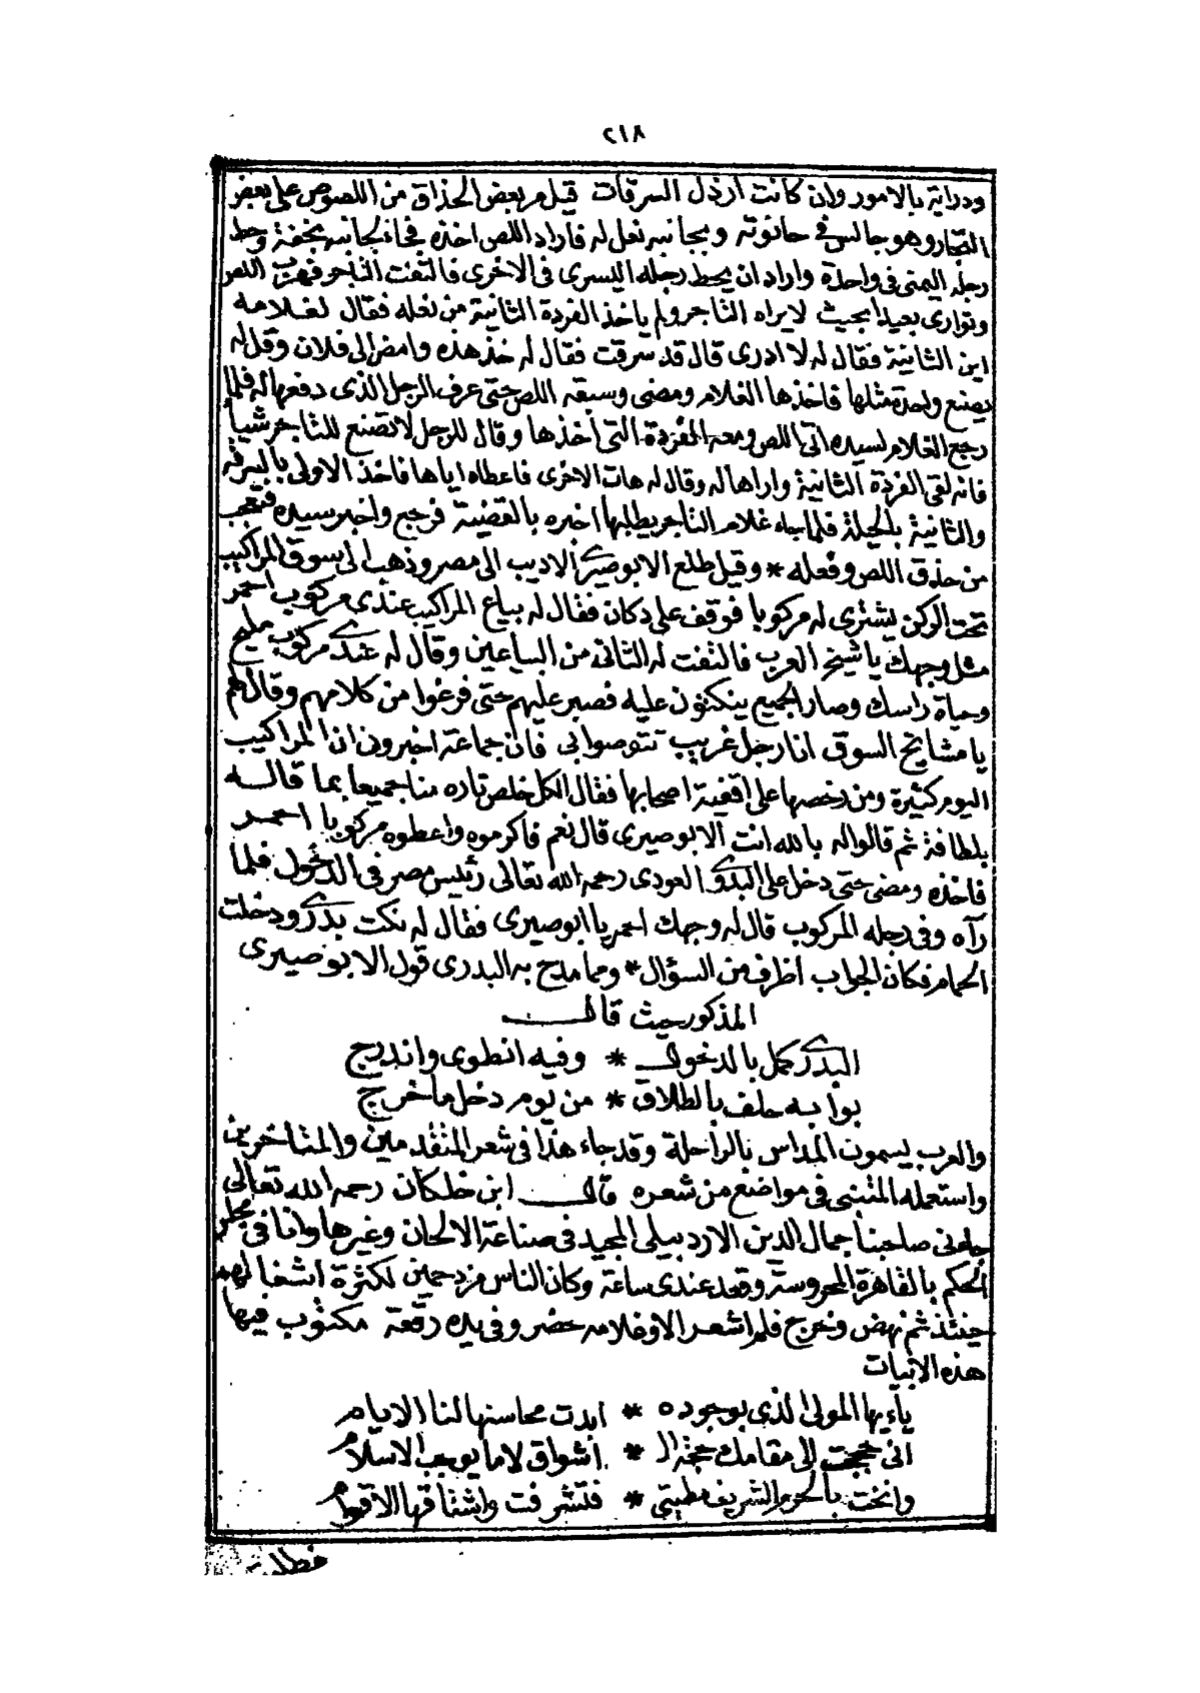 ٢١٨
ودراية بالامور وان كانت ارذل السرقات قيل مر بعض الحذاق من اللصوص على بعض
التجار وهو جالس في حانوته وبجانبه نعل له فاراد اللص اخذه فجاء لجانبه بخفة وحط
رجله اليمنى في واحدة واراد ان يحط رجله اليسرى في الاخرى فالتفت التاجر فهرب اللص
وتوارى بعيدا بحيث لا يراه التاجر ولم ياخذ الفردة الثانية من نعله فقال لغلامه
اين الثانية فقال له لا ادرى قال قد سرقت فقال له خذ هذه وامض الى فلان وقل له
يصنع واحدة مثلها فاخذها الغلام ومضى وسبقه اللص حتى عرف الرجل الذى دفعها له فلما
رجع الغلام لسيده اتى اللص ومعه الفردة التى اخذها وقال للرجل لا تصنع للتاجر شيأ
فانه لقى الفردة الثانية واراها له وقال له هات الاخرى فاعطاه اياها فاخذ الاولى بالسرقه
والثانية بالحيلة فلما جاء غلام التاجر يطلبها اخبره بالقضية فرجع واخبر سيده فتعجب
من حذق اللص وفعله * وقيل طلع الابوصيرى الاديب الى مصر وذهب الى سوق المراكيب
تحت الوكن يشترى له مركوبا فوقف على دكان فقال له بياع المراكيب عندى مركوب احمر
مثل وجهك يا شيخ العرب فالتفت له الثانى من البياعين وقال له عندى مركوب مليح
وحياة راسك وصار الجميع ينكتون عليه فصبر عليهم حتى فرغوا من كلامهم وقال لهم
يا مشايخ السوق انا رجل غريب تتوصوا بى فان جماعة اخبرونى ان المراكيب
اليوم كثيرة ومن رخصها على اقفية اصحابها فقال الكل خلص تاره منا جميعا بما قاله
بلطافة ثم قالوا له بالله انت الابوصيرى قال نعم فاكرموه واعطوه مركوبا احمر
فاخذه ومضى حتى دخل على البدرى العودى رحمه الله تعالى رئيس مصر فى الدخول فلما
رآه وفى رجله المركوب قال له وجهك احمر يا ابوصيرى فقال له نكت بدرى ودخلت
الحمام فكان الجواب اظرف من السؤال * ومما مدح به البدرى قول الابوصيرى
المذكور حيث قال
البدرى كمل بالدخول * وفيه انطوى واندرج
بوابه حلف بالطلاق * من يوم دخل ما خرج
والعرب يسمون المداس بالراحلة وقد جاء هذا فى شعر المتقدمين والمتاخرين
واستعمله المتنبى فى مواضع من شعره قال ابن خلكان رحمه الله تعالى
جاءنى صاحبنا جمال الدين الاردبيلى المجيد فى صناعة الالحان وغيرها وانا فى مجلس
الحكم بالقاهرة المحروسة وقعد عندى ساعة وكان الناس مزدحمين لكثرة اشغالهم
حينئذ ثم نهض وخرج فلم اشعر الا وغلامه حضر وفى يده رقعة مكتوب فيها
هذه الابيات
يا ايها المولى الذى بوجوده * ابدت محاسنها لنا الايام
انى حججت الى مقامك حجة ال * اشواق لا ما يوجب الاسلام
وانخت بالحرم الشريف مطيتى * فتشرفت واشتاقها الاقوام
فظللت